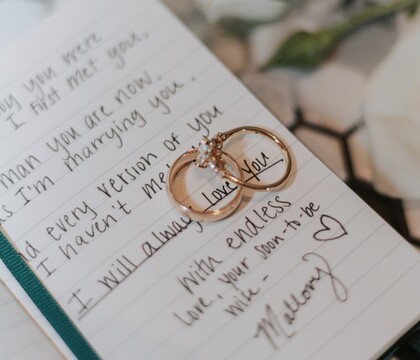 boy you were
I first met you,
man you are now.
as I'm marrying you.
and every version of you
I haven't me
I will always love you
with endless
love, your soon-to-be
wife -
Mallory